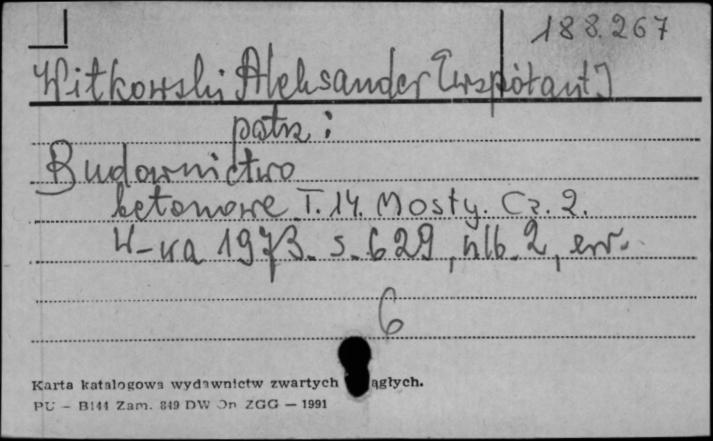 188.267
Witkowski Aleksander [współaut]
patrz:
Budownictwo
betonowe T. 14. Mosty. Cz. 2.
W-wa 1973. s. 629, nlb. 2, err.
6
Karta katalogowa wydawnictw zwartych ągłych.
PU - B144 Zam. 849 DW On ZGG — 1991